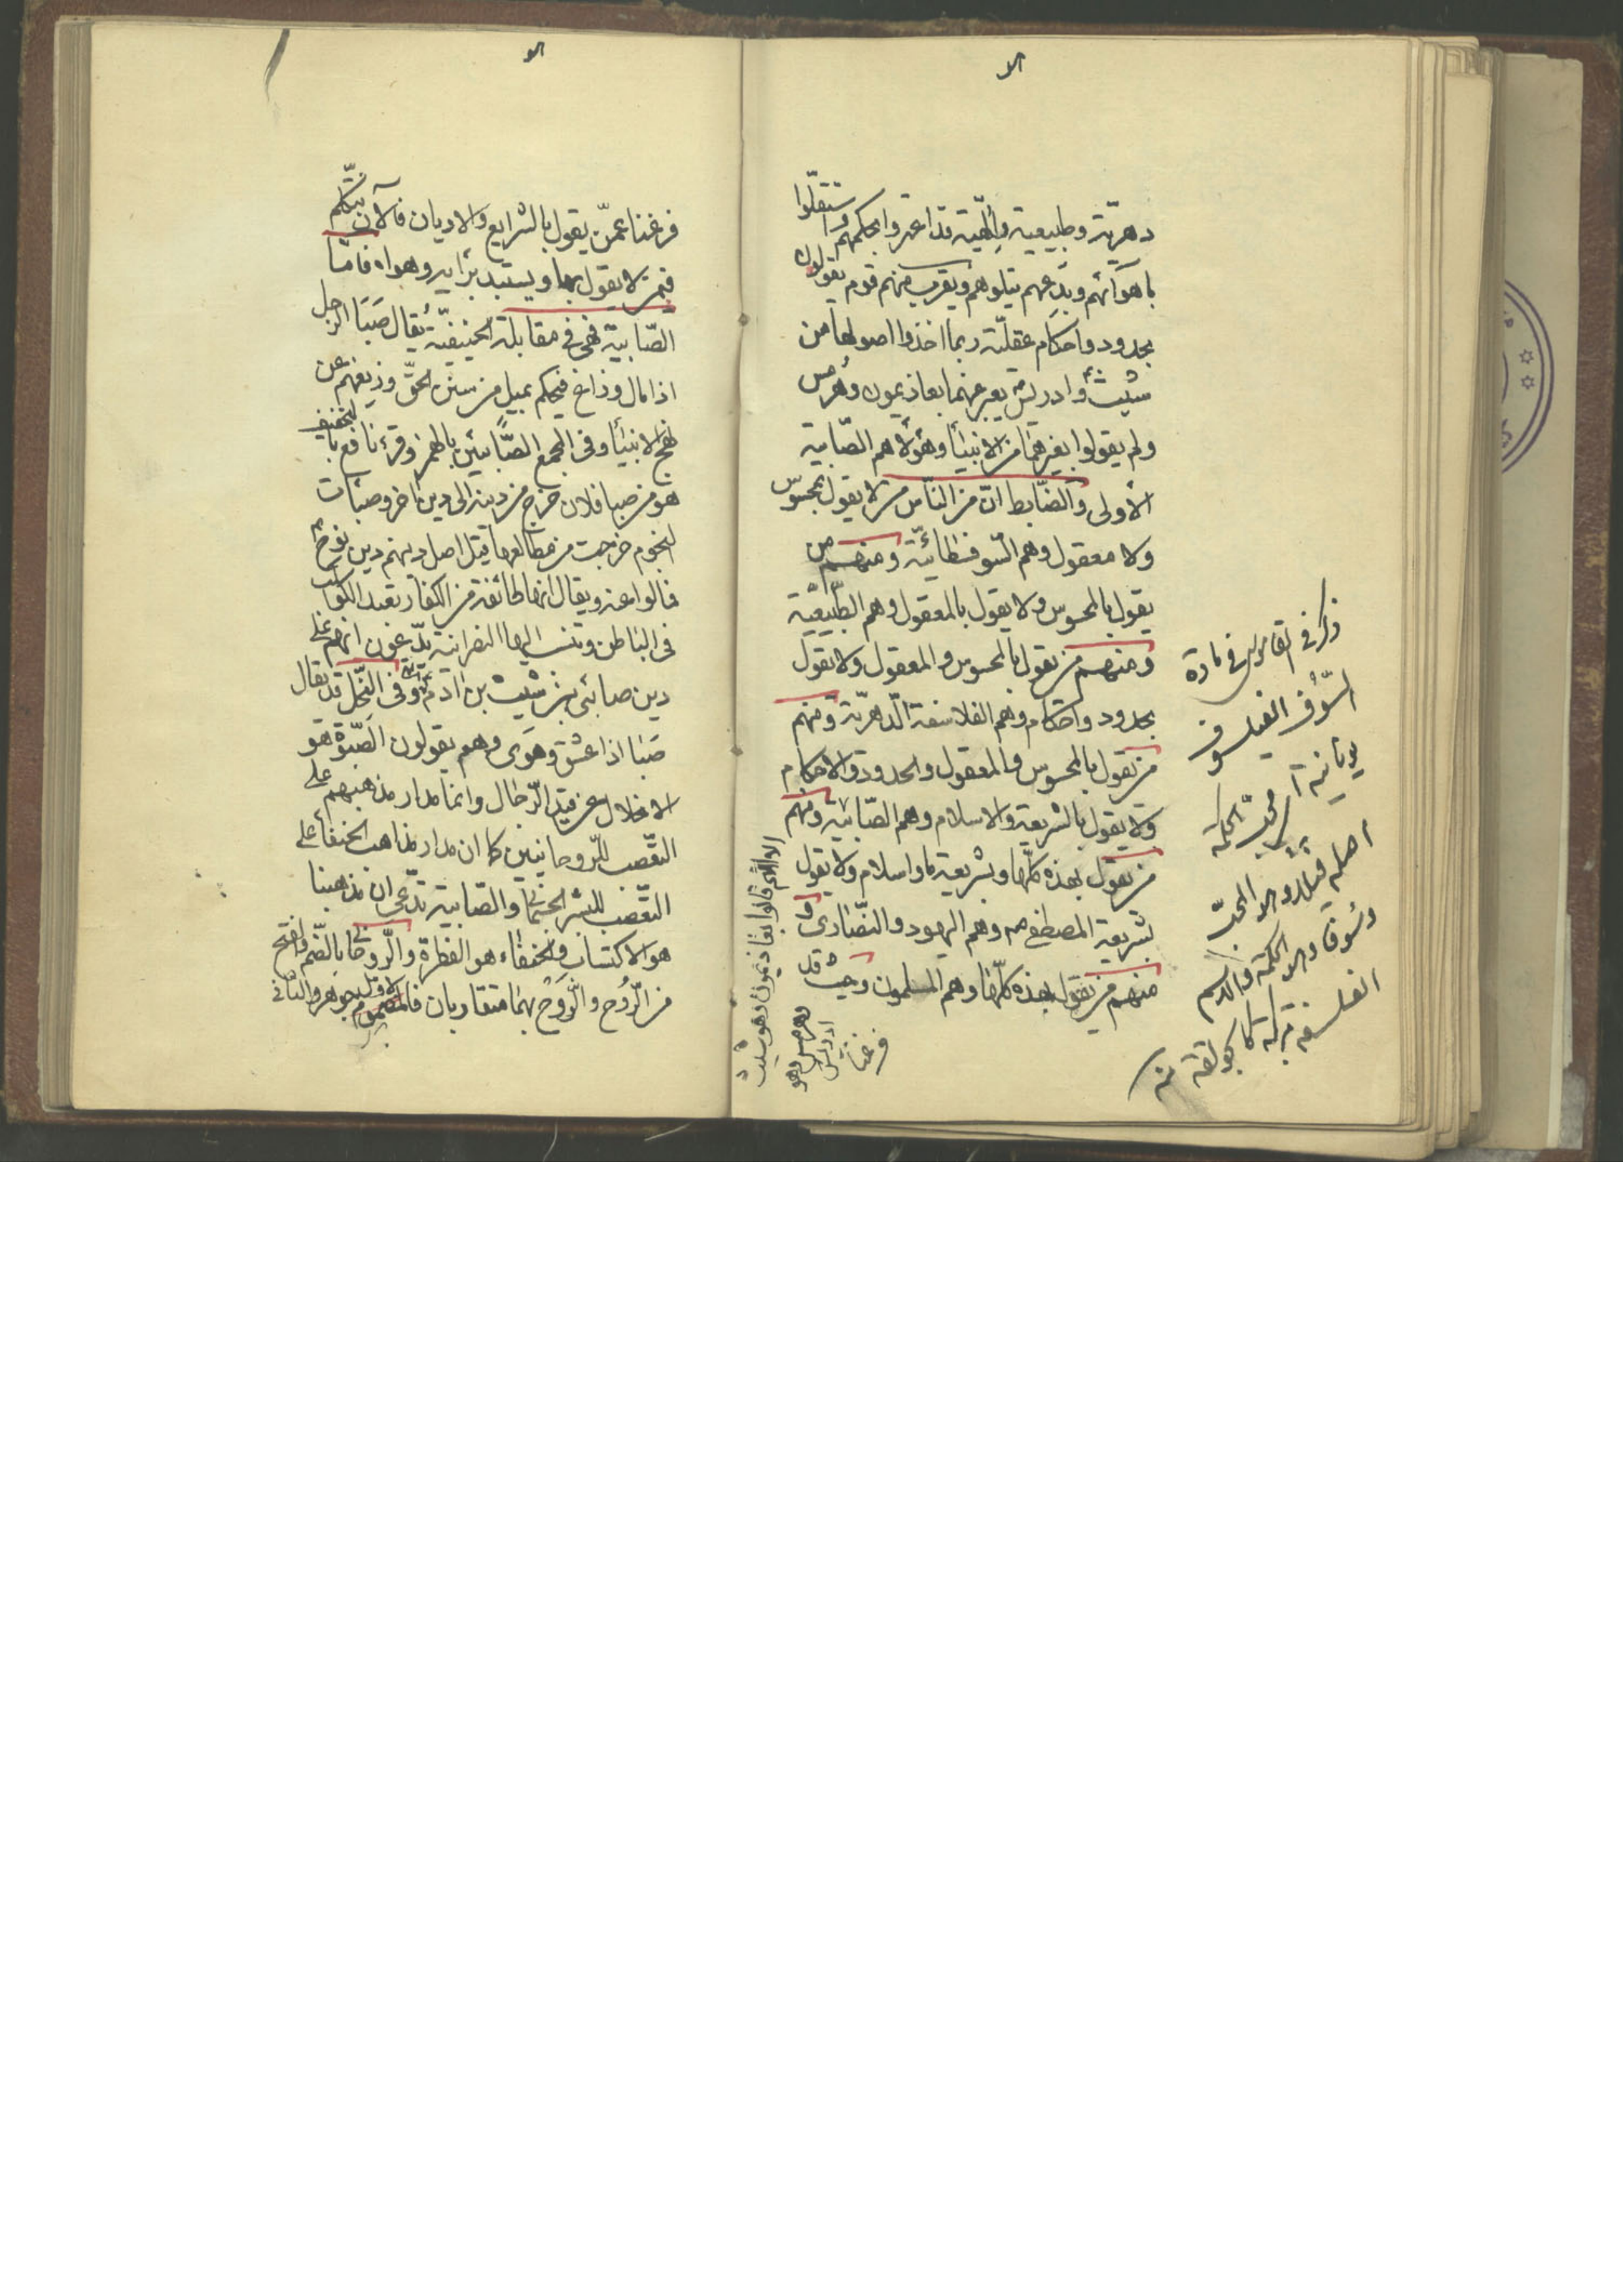 دهريّة وطبيعية وإلٰهية قد اغتروا بحكمهم واستقلّوا
باهوائهم وبدعهم يتلوهم ويقرب منهم قوم يقولون
بحدود واحكام عقليّة ربما اخذوا اصولها من
شيث وادريس يعبر عنهما بعاذيمون وهرمس
ولم يقولوا بغيرهما من الانبيأ وهؤلأ هم الصّابية
الأولى والضّابط انّ من النّاس من لا يقول بمحسوس
ولا معقول وهم السّوفسطائيّة ومنهم من
يقول بالمحسوس ولا يقول بالمعقول وهم الطّبيعيّة
ومنهم من يقول بالمحسوس والمعقول ولا يقول
بحدود واحكام وهم الفلاسفة الدّهريّة ومنهم
من يقول بالمحسوس والمعقول والحدود والاحكام
ولا يقول بالشريعة والاسلام وهم الصّابئية ومنهم
من يقول بهذه كلّها وبشريعة ما واسلام ولا يقول
بشريعة المصطفى صم وهم اليهود والنّصارى و
منهم من يقول بهذه كلّها وهم المسلمون وحيث قد
فرغنا
ذكر فى القاموس فى مادة
السّوف الفيلسوف
يونانية اى محبّ الحكمة
اصله فيلا وهو المحبّ
وسوفا وهو الحكمة والاسم
الفلسفة مركبة كالحوقلة منه
قالوا بعاذيمون وهو شيث
وهرمس وهو
ادريس
فرغنا عمّن يقول بالشرايع والاديان فالآن نتكلّم
فيمن لا يقول بها ويستبد برأيه وهواه فامّا
الصّابية فهى فى مقابلة الحنيفيّة يُقال صَبَا الرجل
اذا مال وزاغ فبحكم ميل من سنن الحقّ وزيغهم عن
نهج الانبيأ وفى المجمع الصّابئين بالهمز وقرء نافع بالتخفيف
هو من صبا فلان خرج من دينه الى دين اخر وصبأت
النجوم خرجت من مطالعها قيل اصل دينهم دين نوح
فمالوا عنه ويقال انها طائفة من الكفار تعبد الكواكب
فى الباطن وتنسب اليها النصرانية يدّعون انهم على
دين صابئى بن شيث بن ادم وفى النّحل قد يقال
صَبا اذا عشق وهَوى وهم يقولون الصّبوة هو
الانحلال عن قيد الرّجال وانما مدار مذهبهم على
التعّصب للرّوحانيين كما ان مدار مذاهب الحنفأ على
التعّصب للبشر الجسمانى والصّابية تدّعى ان مذهبنا
هو الاكتساب والحنفاء هو الفطرة والرّوحانى بالضّم والفتح
من الرُّوح والرَّوح بهما متقاربان فالمضموم جوهر والثانى